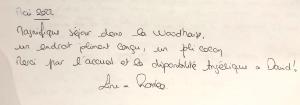 Mai 2022
Magnifique séjour dans la Woodhaus,
un endroit joliment conçu, un pti cocon
Merci par l'accueil et la disponibilité Angélique & David!
Line &